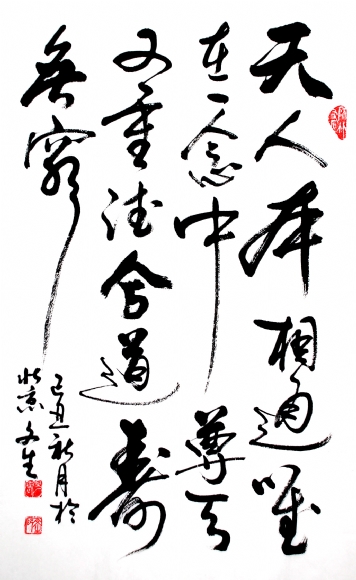 天人本相通唯
在一念中尊天
又重德會道寿
無窮
己丑秋月於
北京文生